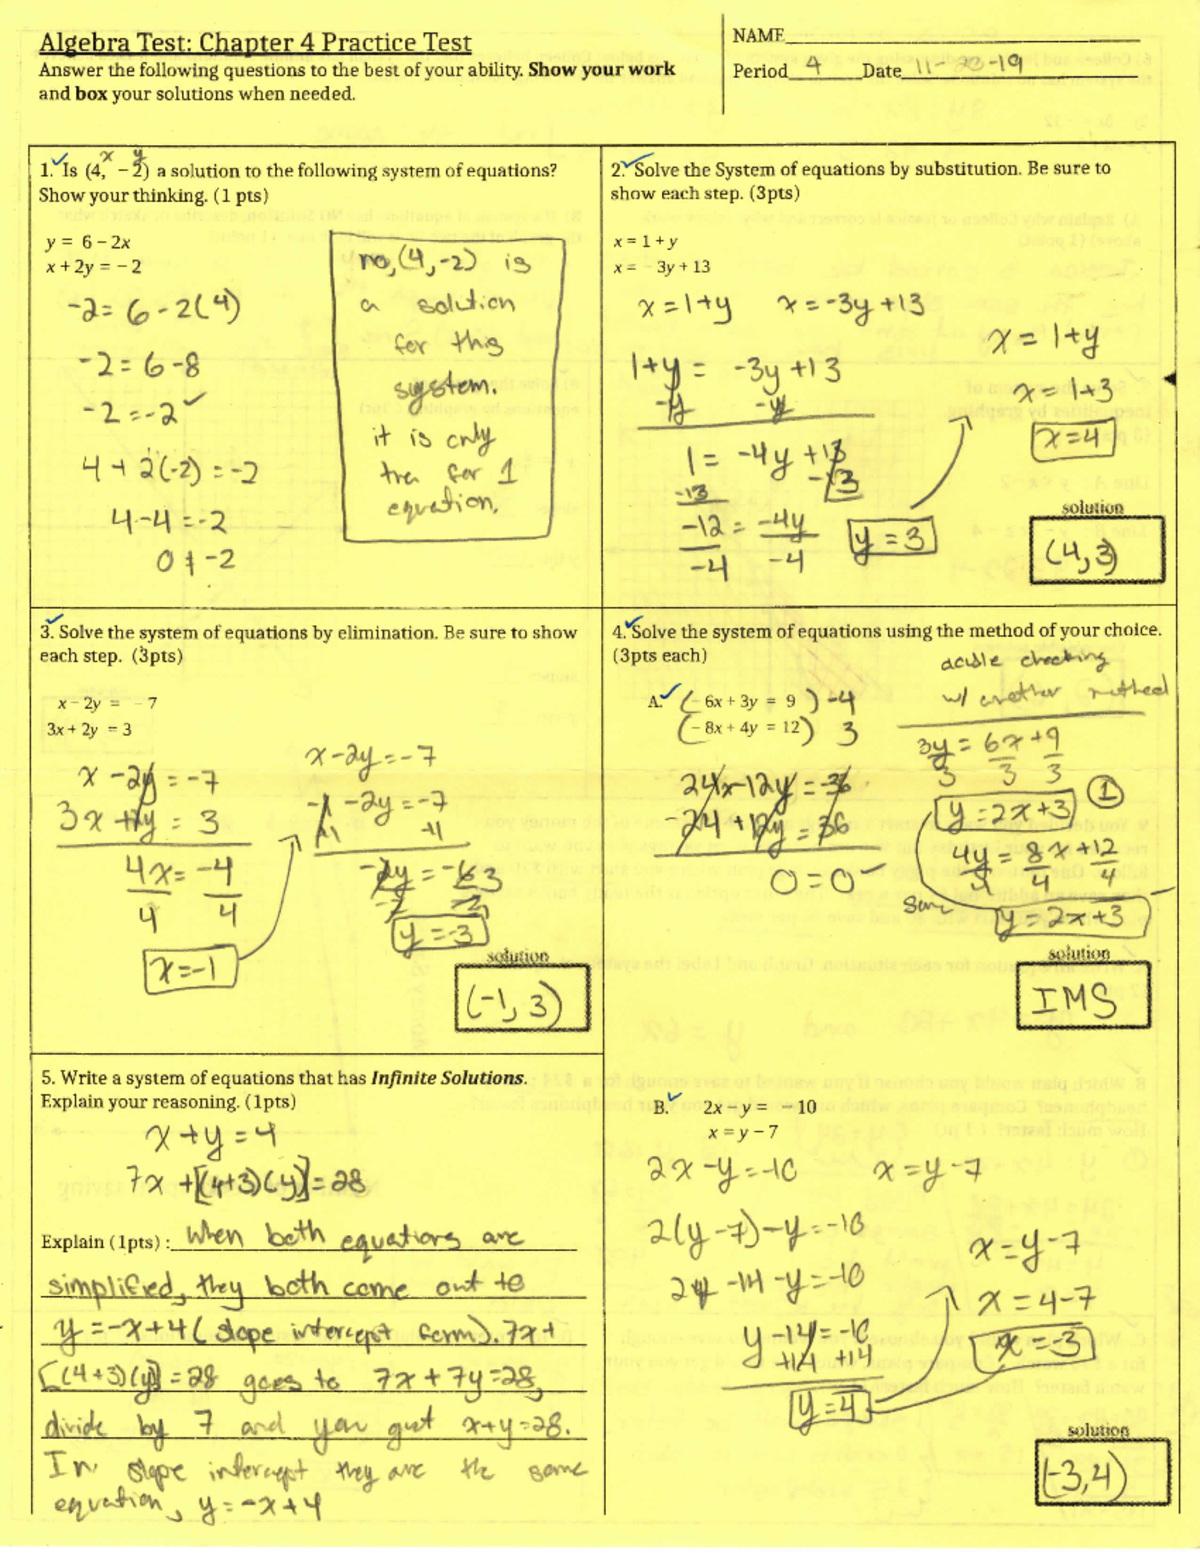 Algebra Test: Chapter 4 Practice Test
Answer the following questions to the best of your ability. Show your work
and box your solutions when needed.
NAME
Period 4 Date 11- -19
1. Is (4, -2) a solution to the following system of equations?
x y
Show your thinking. (1 pts)
y = 6 – 2x
x + 2y = – 2
-2 = 6 - 2(4)
-2 = 6 - 8
-2 = -2 ✓
4 + 2(-2) = -2
4 - 4 = -2
0 ≠ -2
no, (4, -2) is
a solution
for this
system.
it is only
tru for 1
equation.
2. Solve the System of equations by substitution. Be sure to
show each step. (3pts)
x = 1 + y
x = - 3y + 13
x = 1+y x = -3y +13
1+y = -3y +13
-y -y
1 = -4y +13
-13 -13
-12 = -4y
-4 -4
y = 3
x = 1+y
x = 1+3
x=4
solution
(4,3)
3. Solve the system of equations by elimination. Be sure to show
each step. (3pts)
x – 2y = - 7
3x + 2y = 3
x - 2y = -7
3x + 2y = 3
4x = -4
4 4
x=-1
x-2y=-7
-1 -2y = -7
+1 +1
-2y = -6 3
-2 -2
y = -3
solution
(-1, 3)
4. Solve the system of equations using the method of your choice.
(3pts each)
duble checking
w/ another method
A. (- 6x + 3y = 9 ) -4
(- 8x + 4y = 12) 3
24x-12y = -36
-24 +12y = 36
0 = 0
3y = 6x +9
3 3 3
y = 2x+3 1
4y = 8x +12
4 4 4
same
y = 2x +3
solution
IMS
5. Write a system of equations that has Infinite Solutions.
Explain your reasoning. (1pts)
x + y = 4
7x +[(4+3)(y)] = 28
Explain (1pts) : When both equations are
simplified, they both come out to
y = -x+4 ( slope intercept form). 7x +
[(4+3)(y)] = 28 goes to 7x + 7y =28,
divide by 7 and you get x+y =28.
In slope intercept they are the same
equation, y = -x + 4
B. 2x – y = – 10
x = y – 7
2x -y = -10 x = y -7
2(y -7) - y = -10
2y -14 -y = -10
y -14 = -10
+14 +14
y = 4
x = y -7
x = 4-7
x = -3
solution
(-3,4)